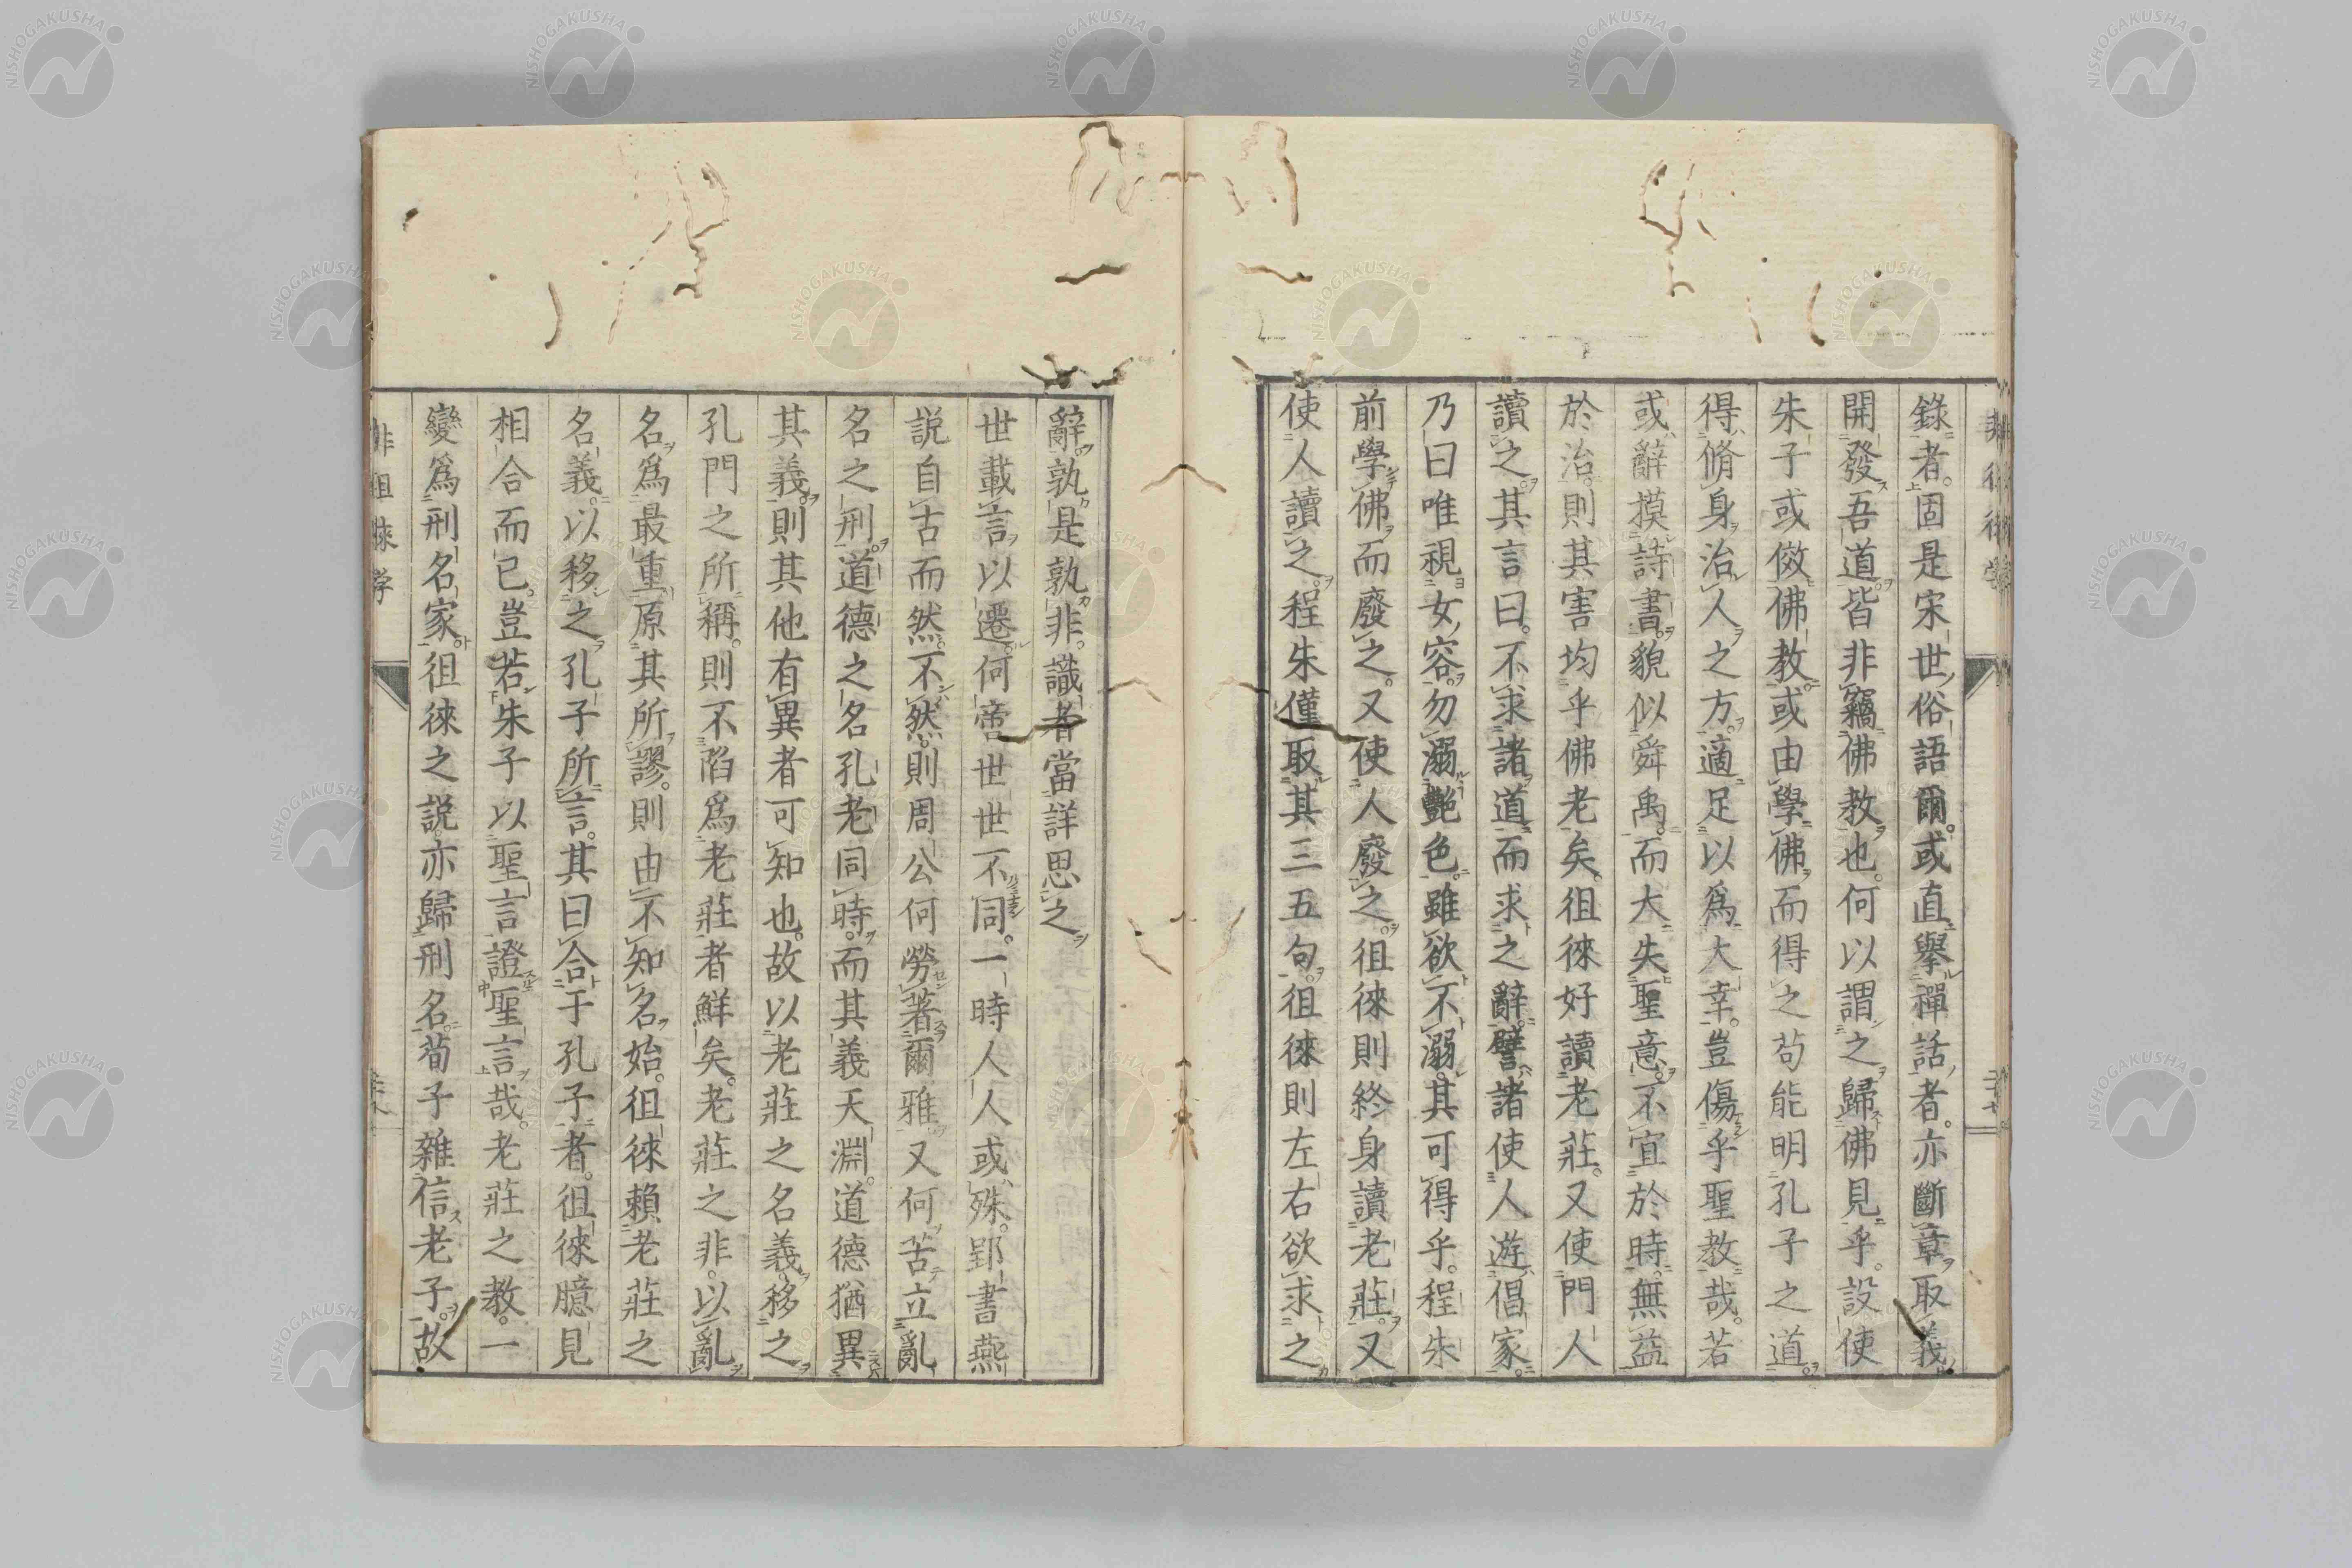 錄者。固是宋世俗語爾。或直舉禪話者。亦斷章取義。
開發吾道。皆非竊佛教也。何以謂之歸佛見乎。設使
朱子或傚佛教。或由學佛而得之苟能明孔子之道。
得脩身治人之方。適足以爲大幸。豈傷乎聖教哉。若
或辭摸詩書。貌似舜禹。而大失聖意。不宜於時。無益
於治。則其害均乎佛老矣。徂徠好讀老莊。又使門人
讀之。其言曰。不求諸道而求之辭。譬諸使人遊倡家。
乃曰唯視女容。勿溺艷色。雖欲不溺。其可得乎。程朱
前學佛而廢之。又使人廢之。徂徠則終身讀老莊。又
使人讀之。程朱僅取其三五句。徂徠則左右欲求之
辭。孰是孰非。識者當詳思之
世載言以遷。何啻世世不同。一時人人或殊。郢書燕
説自古而然。不然。則周公何勞著爾雅又何苦立亂
名之刑。道德之名孔老同時。而其義天淵。道德猶異
其義。則其他有異者可知也。故以老莊之名義移之
孔門之所稱。則不陷爲老莊者鮮矣。老莊之非。以亂
名爲最重原其所謬。則由不知名始。徂徠賴老莊之
名義。以移之孔子所言。其曰合于孔子者。徂徠臆見
相合而已。豈若朱子以聖言證聖言哉。老莊之教。一
變爲刑名家。徂徠之説。亦歸刑名。荀子雜信老子。故
非徂徠学